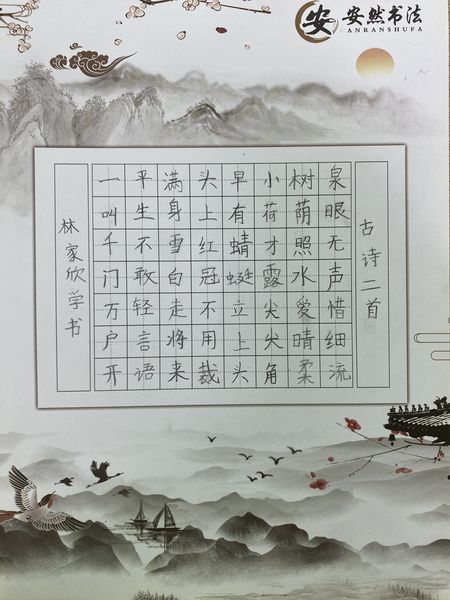 安 安然书法
ANRANSHUFA
古诗二首
泉眼无声惜细流
树荫照水爱晴柔
小荷才露尖尖角
早有蜻蜓立上头
头上红冠不用裁
满身雪白走将来
平生不敢轻言语
一叫千门万户开
林家欣学书